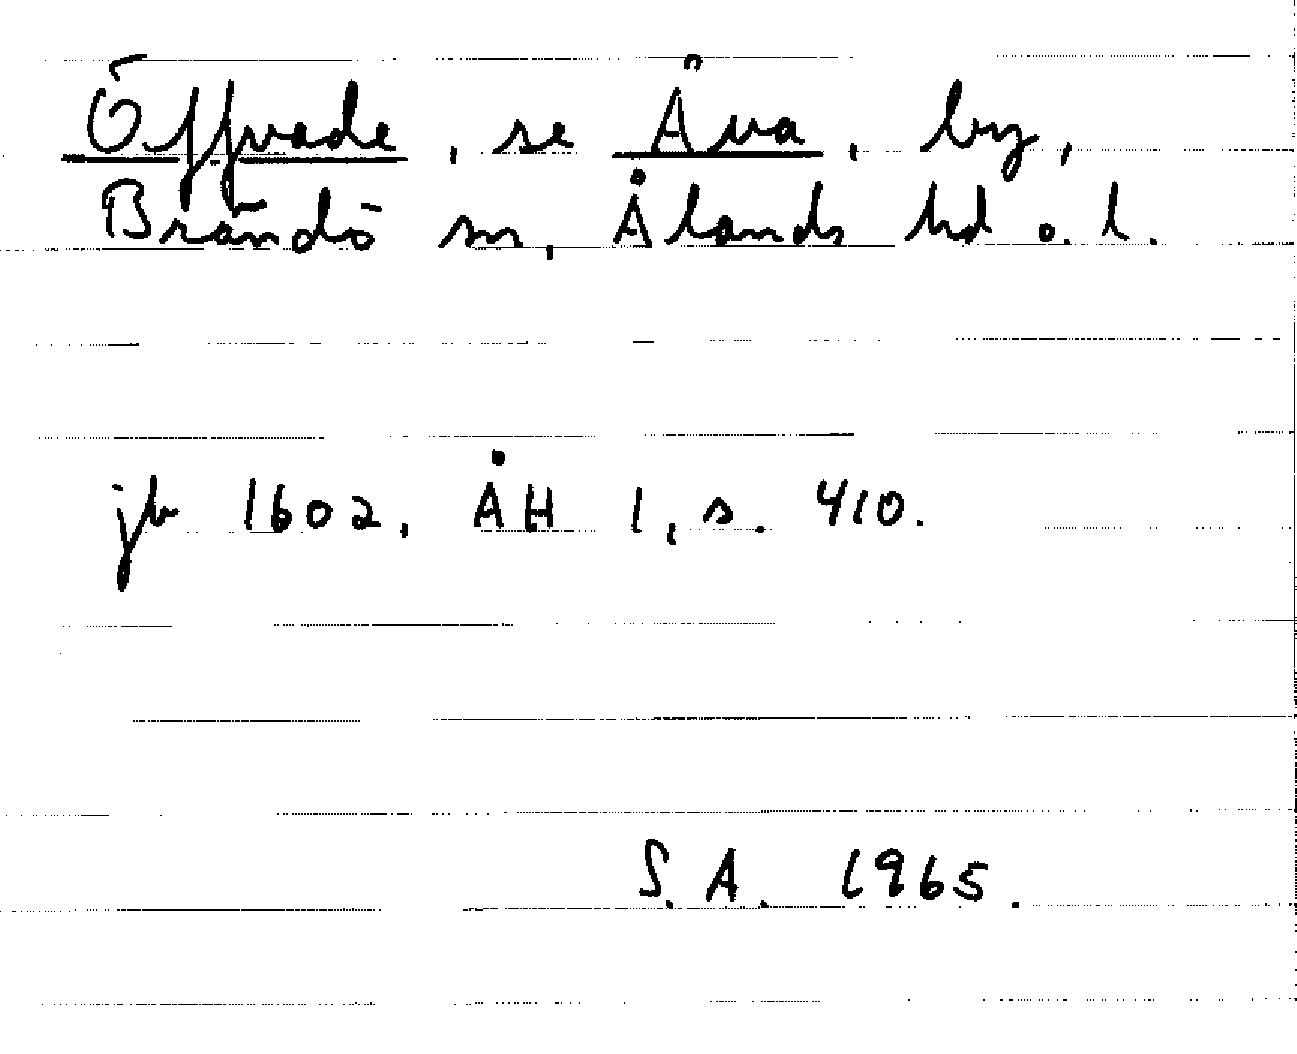 Öffvade, se Åva, by,
Brändö sn, Ålands hd o. l.
jb 1602, ÅH 1, s. 410.
S. A. 1965.